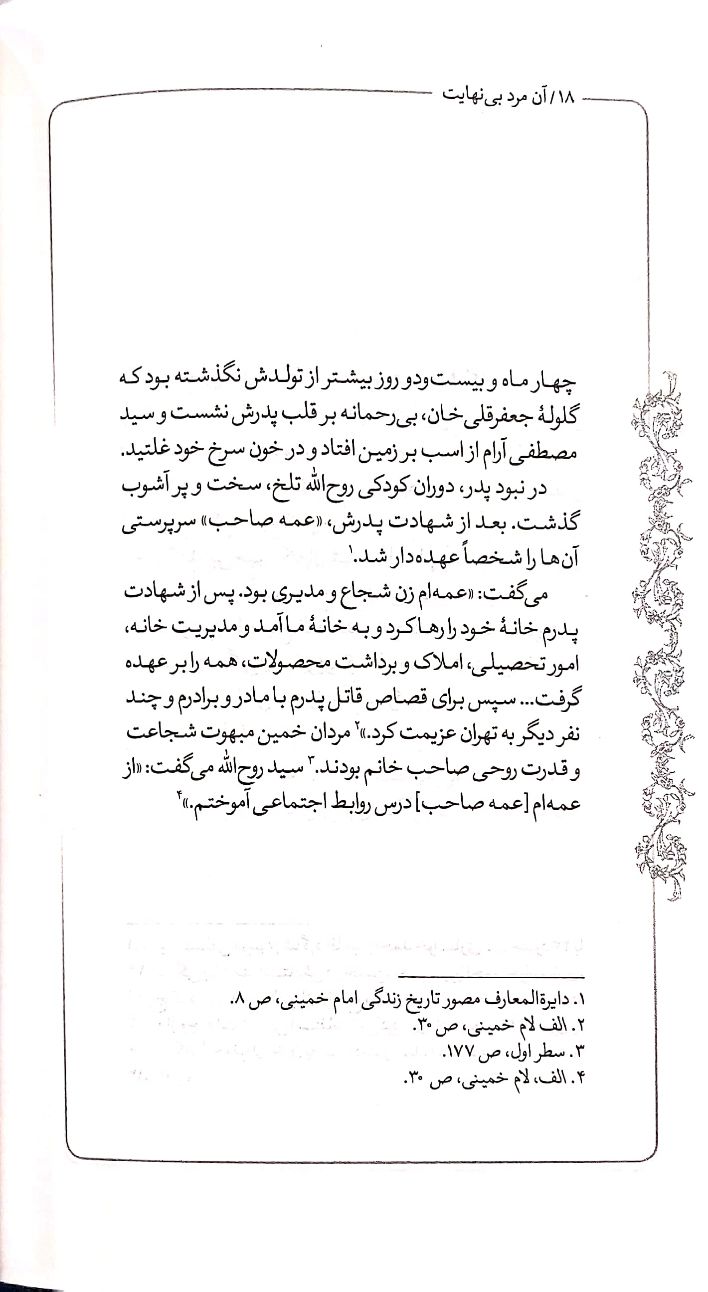 ۱۸/ آن مرد بی‌نهایت
چهار ماه و بیست‌ودو روز بیشتر از تولدش نگذشته بود که
گلولهٔ جعفرقلی‌خان، بی‌رحمانه بر قلب پدرش نشست و سید
مصطفی آرام از اسب بر زمین افتاد و در خون سرخ خود غلتید.
در نبود پدر، دوران کودکی روح‌الله تلخ، سخت و پر آشوب
گذشت. بعد از شهادت پدرش، «عمه صاحب» سرپرستی
آن‌ها را شخصاً عهده‌دار شد.۱
می‌گفت: «عمه‌ام زن شجاع و مدیری بود. پس از شهادت
پدرم خانهٔ خود را رها کرد و به خانهٔ ما آمد و مدیریت خانه،
امور تحصیلی، املاک و برداشت محصولات، همه را بر عهده
گرفت... سپس برای قصاص قاتل پدرم با مادر و برادرم و چند
نفر دیگر به تهران عزیمت کرد.»۲ مردان خمین مبهوت شجاعت
و قدرت روحی صاحب خانم بودند.۳ سید روح‌الله می‌گفت: «از
عمه‌ام [عمه صاحب] درس روابط اجتماعی آموختم.»۴
۱. دایرة‌المعارف مصور تاریخ زندگی امام خمینی، ص ۸.
۲. الف لام خمینی، ص ۳۰.
۳. سطر اول، ص ۱۷۷.
۴. الف، لام خمینی، ص ۳۰.